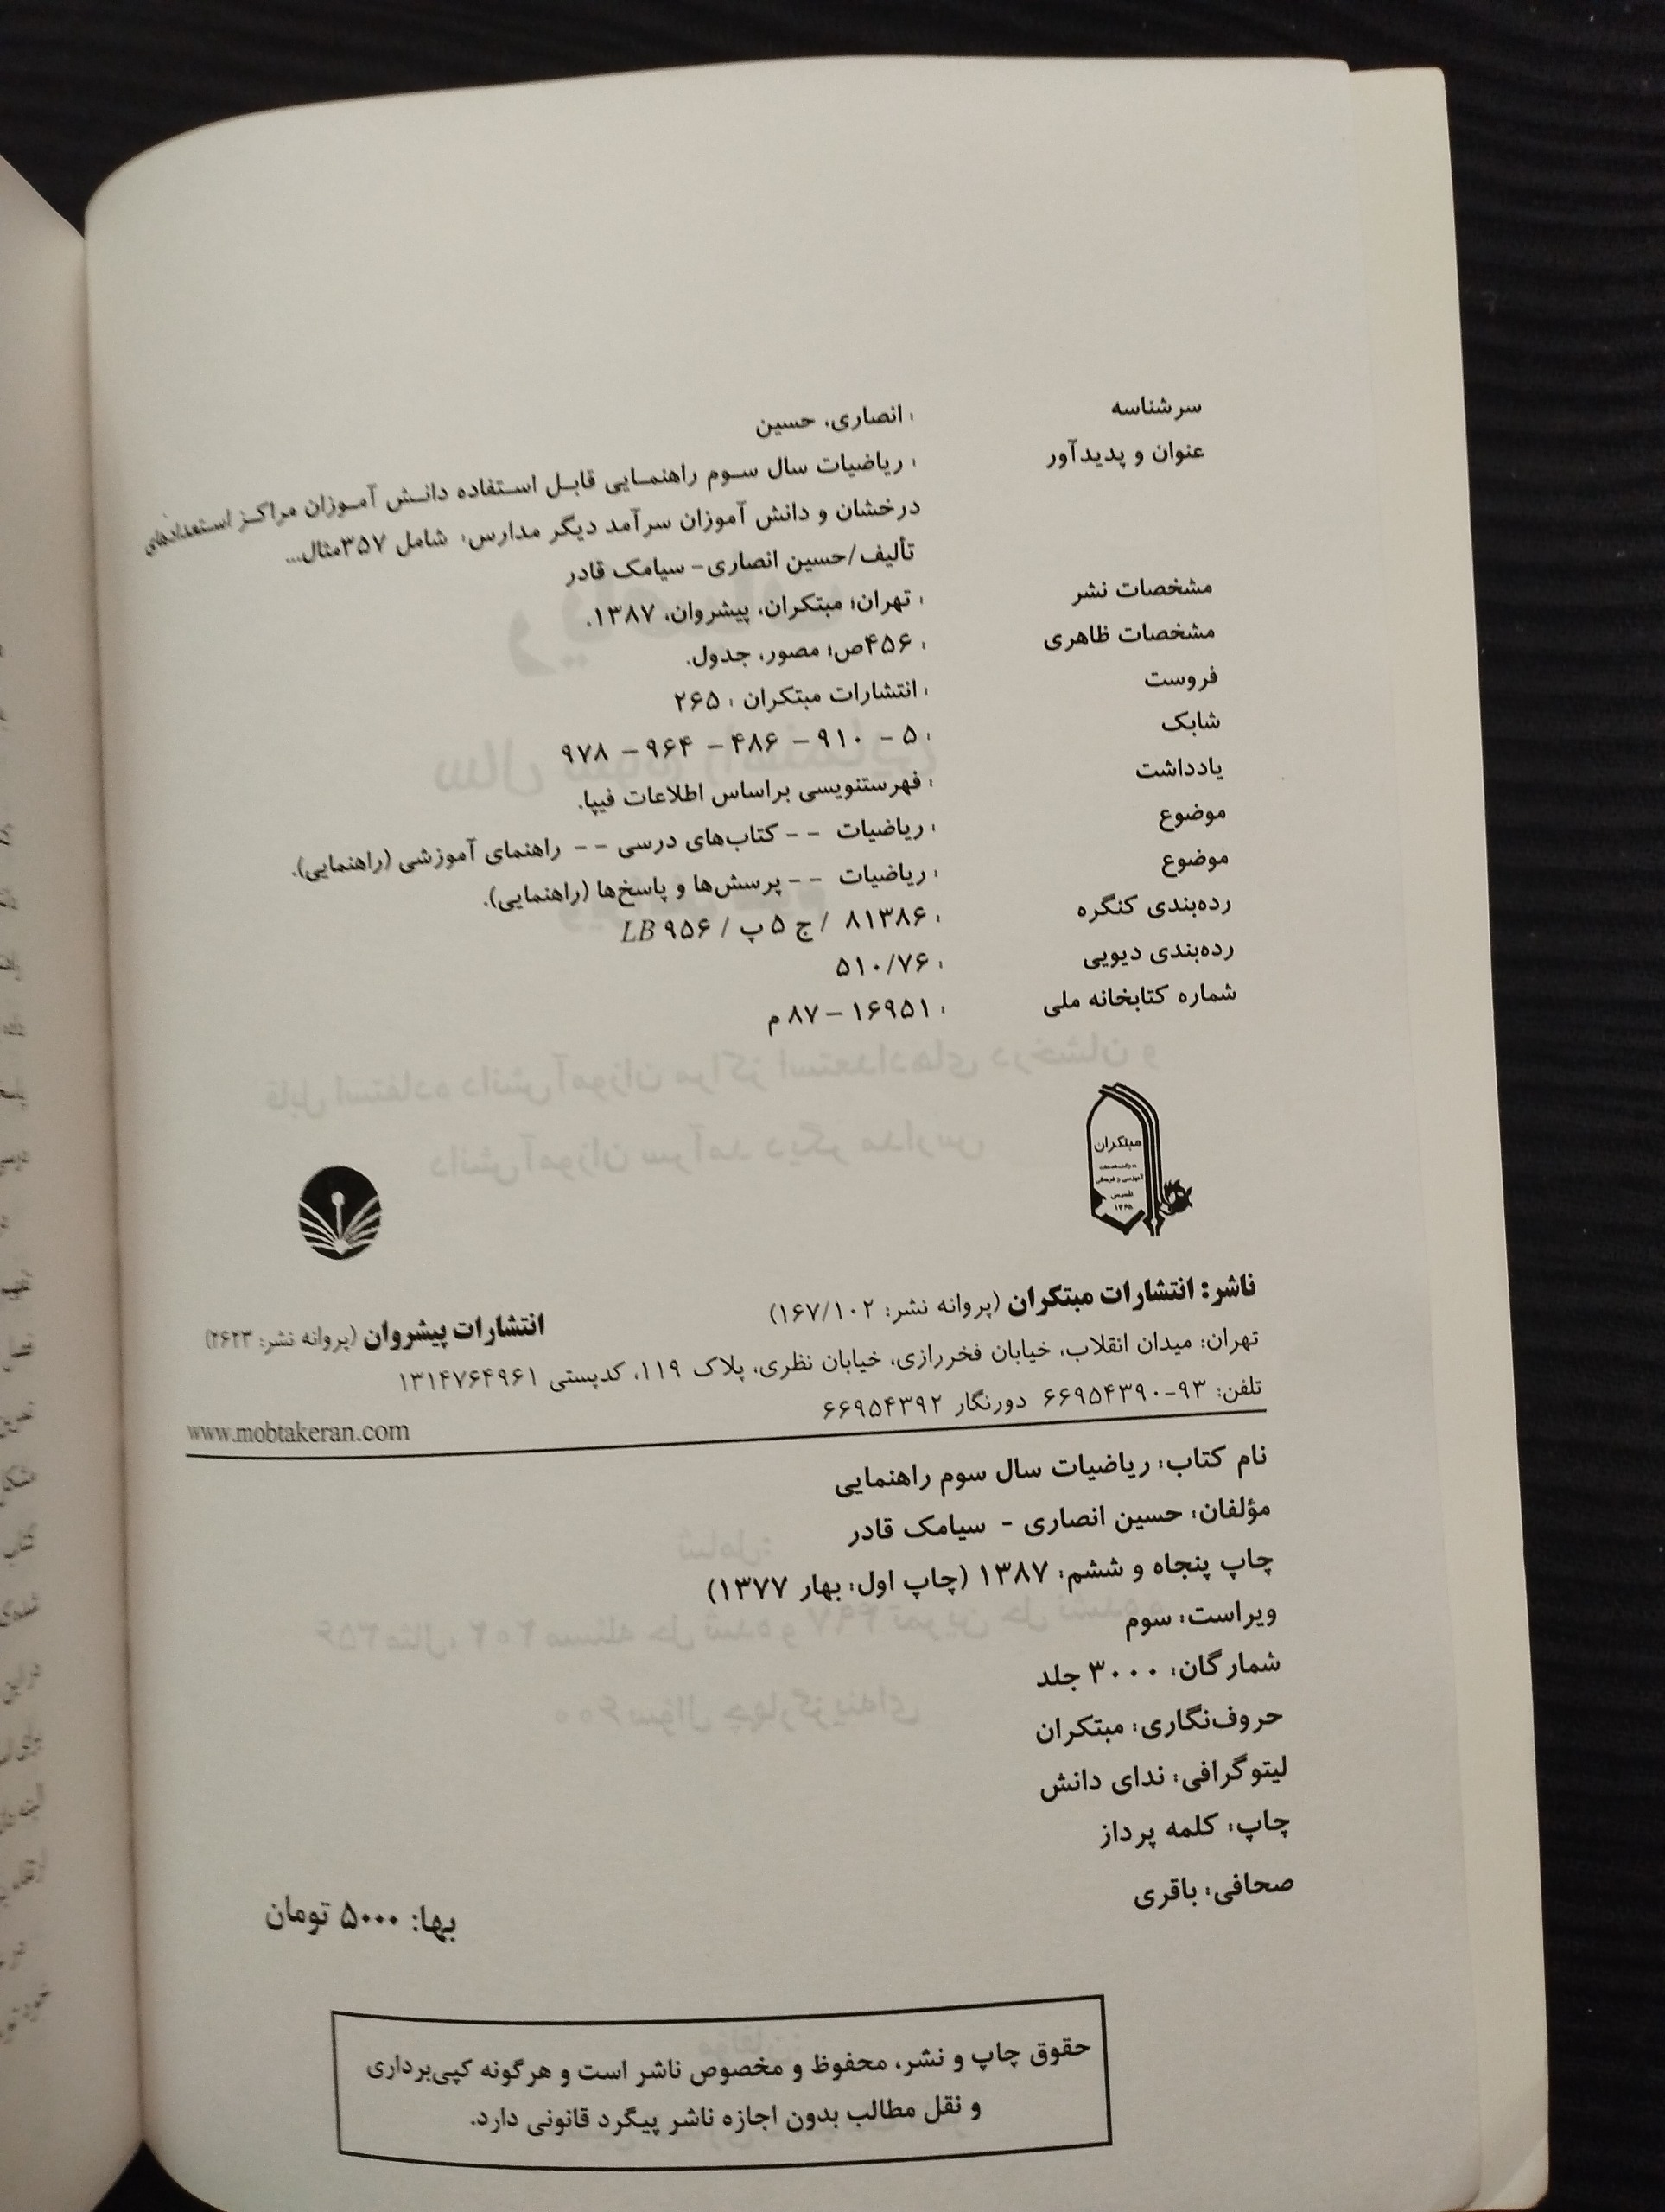 سرشناسه : انصاری، حسین
عنوان و پدیدآور : ریاضیات سال سوم راهنمایی قابل استفاده دانش آموزان مراکز استعدادهای
درخشان و دانش آموزان سرآمد دیگر مدارس: شامل ۳۵۷مثال...
تألیف/حسین انصاری- سیامک قادر
مشخصات نشر : تهران؛ مبتکران، پیشروان، ۱۳۸۷.
مشخصات ظاهری : ۴۵۶ص؛ مصور، جدول.
فروست : انتشارات مبتکران : ۲۶۵
شابک : ۵ - ۹۱۰ - ۴۸۶ - ۹۶۴ - ۹۷۸
یادداشت : فهرستنویسی براساس اطلاعات فیپا.
موضوع : ریاضیات -- کتاب‌های درسی -- راهنمای آموزشی (راهنمایی).
موضوع : ریاضیات -- پرسش‌ها و پاسخ‌ها (راهنمایی).
رده‌بندی کنگره : ۸۱۳۸۶ /ج ۵ پ / LB ۹۵۶
رده‌بندی دیویی : ۵۱۰/۷۶
شماره کتابخانه ملی : ۱۶۹۵۱-۸۷ م
مبتکران
آموزشی و فرهنگی
تأسیس
ناشر: انتشارات مبتکران (پروانه نشر: ۱۶۷/۱۰۲) انتشارات پیشروان (پروانه نشر: ۲۶۲۳)
تهران: میدان انقلاب، خیابان فخررازی، خیابان نظری، پلاک ۱۱۹، کدپستی ۱۳۱۴۷۶۴۹۶۱
تلفن: ۹۳-۶۶۹۵۴۳۹۰ دورنگار ۶۶۹۵۴۳۹۲
www.mobtakeran.com
نام کتاب: ریاضیات سال سوم راهنمایی
مؤلفان: حسین انصاری - سیامک قادر
چاپ پنجاه و ششم: ۱۳۸۷ (چاپ اول: بهار ۱۳۷۷)
ویراست: سوم
شمارگان: ۳۰۰۰ جلد
حروف‌نگاری: مبتکران
لیتوگرافی: ندای دانش
چاپ: کلمه پرداز
صحافی: باقری
بها: ۵۰۰۰ تومان
حقوق چاپ و نشر، محفوظ و مخصوص ناشر است و هرگونه کپی‌برداری
و نقل مطالب بدون اجازه ناشر پیگرد قانونی دارد.